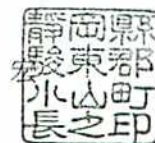 靜岡縣
駿東郡
小山町
長之印